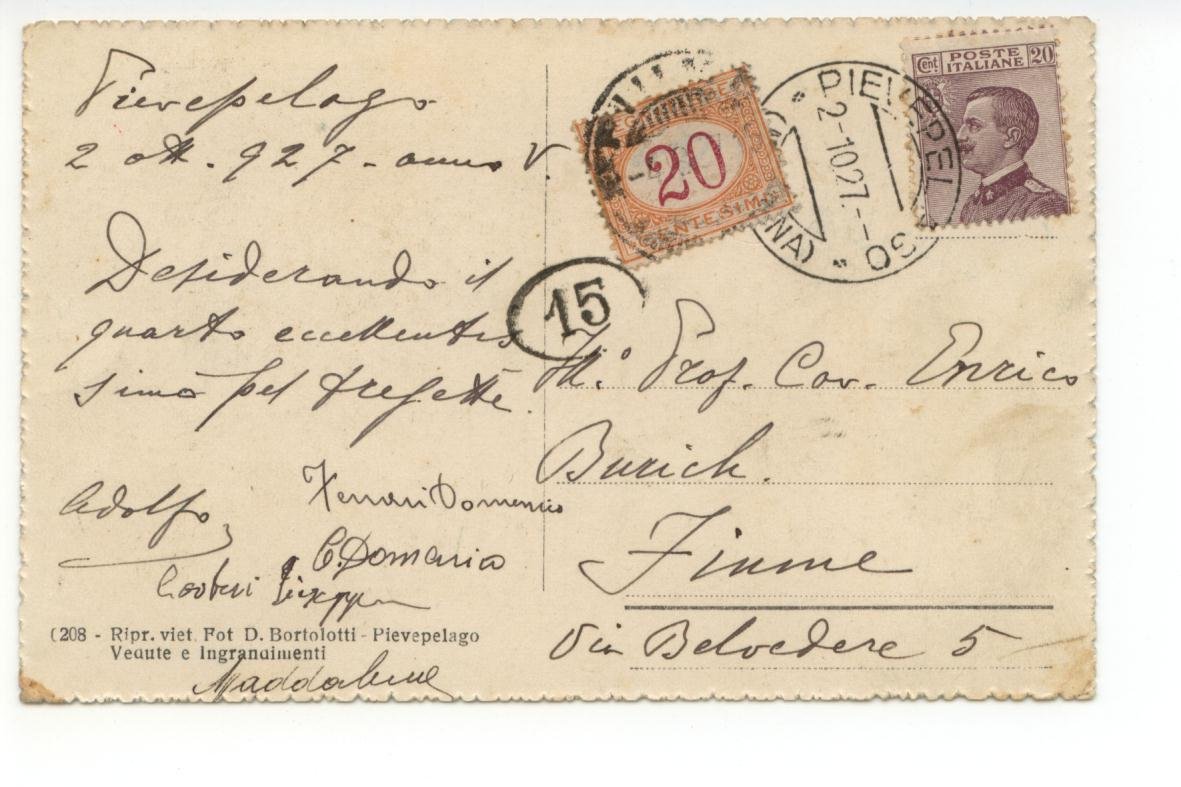 Pievepelago
2 ott. 927 - anno V.
Desiderando il
quarto eccellentis
simo pel tressette.
Adolfo
Ferrari Domenico
C. Domenico
Giuseppe
Maddalena
(208 - Ripr. viet. Fot D. Bortolotti - Pievepelago
Vedute e Ingrandimenti
20
CENTESIMI
15
PIEVEPELAGO
2-10 27.--
NA)
Cent. POSTE ITALIANE 20
Ill.º Prof. Cav. Enrico
Burich.
Fiume
Via Belvedere 5